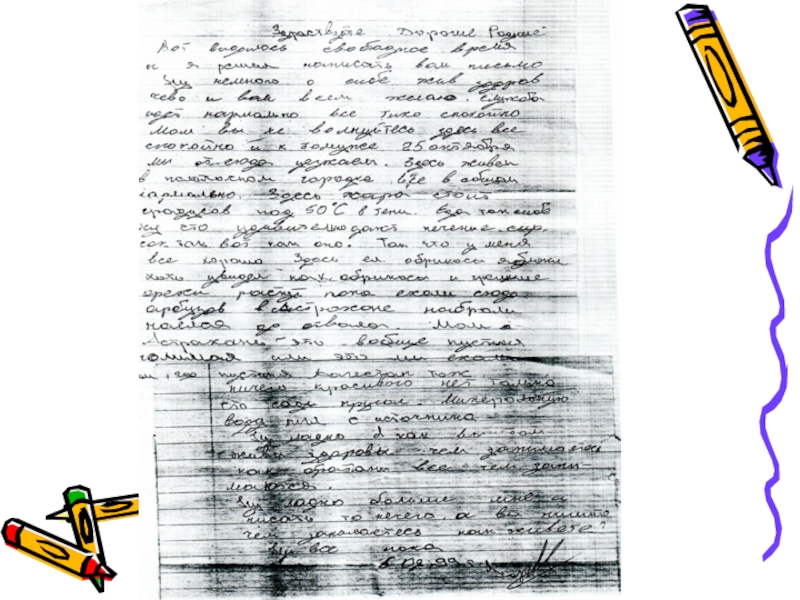 Здраствуйте Дорогие Родные
Вот выдалось свободное время
и я решил написать вам письмо
Ну немного о себе жив здоров
чево и вам всем желаю. Служба
идёт нормально все тихо спокойно
Мам вы не волнуйтесь здесь все
спокойно и к томуже 25 октября
мы от-сюда уезжаем. Здесь живем
в палаточном городке все в общем
нармально. Здесь жара стоит
градусов под 50°С в тени. Еда
что удивительно дают печение, сыр,
сок так вот мам оно. Так что у меня
все хорошо Здесь ел абрикосы яблоки
хоть увидел как абрикосы и грецкие
орехи растут пока ехали сюда
арбузов в Астрахане набрали
наелся до отвала. Мам в
Астрахане это вобще пустыня
или это мы ехали
где пустыня тож
ничего красивого нет только
сады кругом. Минеральную
воду пили с источника
Ну ладно а как вы там
живы здоровы чем занимаетесь
как все чем зани-
маются.
Ну ладно больше мне
писать то нечего, а вы пишите
чем занимаетесь как живете?
Ну все пока
99